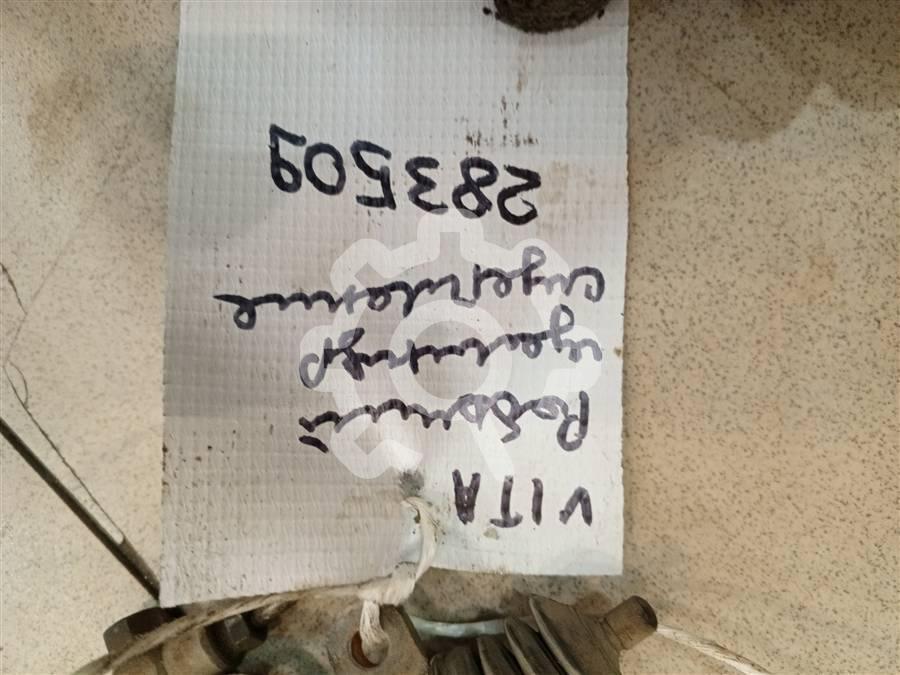 VITA
Рабочий
цилиндр
сцепление
283509